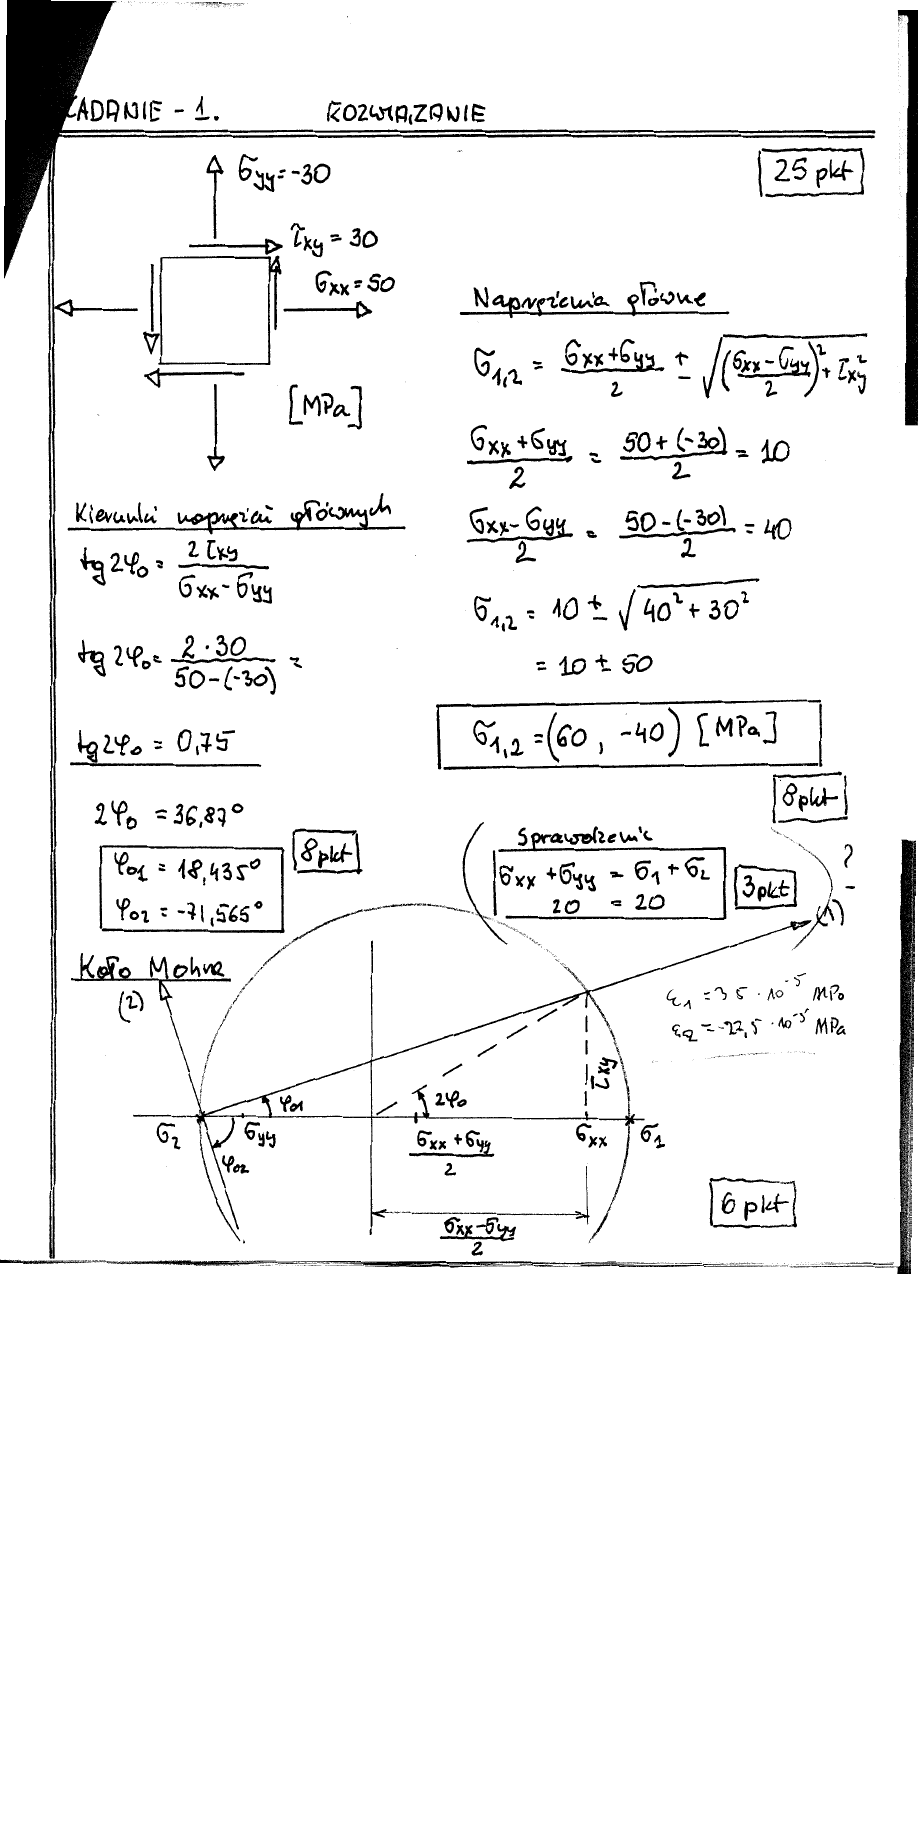 ZADANIE - 1. ROZWIĄZANIE
25 pkt
σyy = -30
τxy = 30
σxx = 50
[MPa]
Naprężenia główne
σ1,2 = (σxx + σyy)/2 ± √(((σxx - σyy)/2)² + τxy²)
(σxx + σyy)/2 = (50 + (-30))/2 = 10
(σxx - σyy)/2 = (50 - (-30))/2 = 40
σ1,2 = 10 ± √(40² + 30²)
= 10 ± 50
σ1,2 = (60 , -40) [MPa]
8 pkt
Kierunki naprężeń głównych
tg 2φ0 = 2τxy/(σxx - σyy)
tg 2φ0 = 2 · 30/(50 - (-30)) =
tg 2φ0 = 0,75
2φ0 = 36,87°
φ01 = 18,435°
φ02 = -71,565°
8 pkt
Sprawdzenie
σxx + σyy = σ1 + σ2
20 = 20
3 pkt
?
Koło Mohra
(1)
(2)
ε1 = 35 · 10⁻⁵ MPa
ε2 = -22,5 · 10⁻⁵ MPa
τxy
φ01
2φ0
σ2
σyy
φ02
(σxx + σyy)/2
σxx
σ1
(σxx - σyy)/2
6 pkt